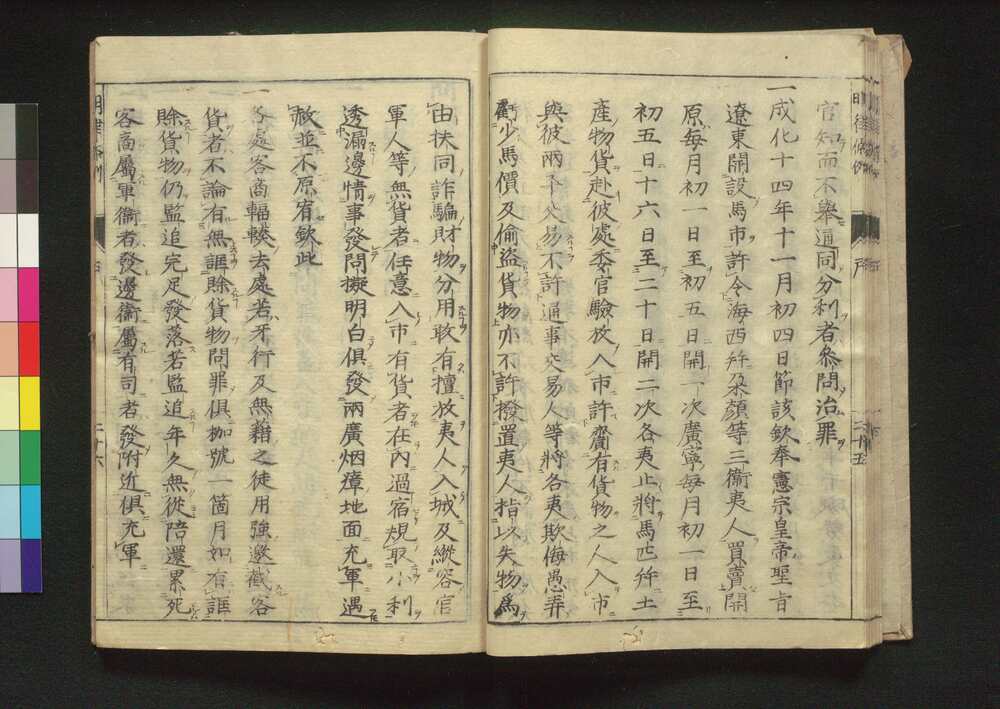 官知而不舉通同分利者參問治罪
一成化十四年十一月初四日節該欽奉憲宗皇帝聖旨
遼東開設馬市許令海西幷朶顏等三衞夷人買賣開
原每月初一日至初五日開一次廣寧每月初一日至
初五日十六日至二十日開二次各夷止將馬匹幷土
產物貨赴彼處委官驗放入市許齎有貨物之人入市
與彼兩平交易不許通事交易人等將各夷欺侮愚弄
虧少馬價及偷盜貨物亦不許撥置夷人指以失物爲
由扶同詐騙財物分用敢有擅放夷人入城及縱容官
軍人等無貨者任意入市有貨者在內過宿規取小利
透漏邊情事發問擬明白俱發兩廣烟瘴地面充軍遇
赦並不原宥欽此
一各處客商輻輳去處若牙行及無籍之徒用強邀截客
貨者不論有無誆賒貨物問罪俱枷號一箇月如有誆
賒貨物仍監追完足發落若監追年久無從陪還累死
客商屬軍衞者發邊衞屬有司者發附近俱充軍
明律條例
二十六